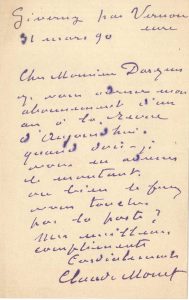 Giverny par Vernon
eure
31 mars 90
Cher Monsieur
vous
abonnement d'un
an à la Revue
d'aujourd'hui.
quand dois-je
vous en
le montant.
ou bien le
vous toucher
par la poste?
Mes meilleurs
compliments
Cordialement
Claude Monet